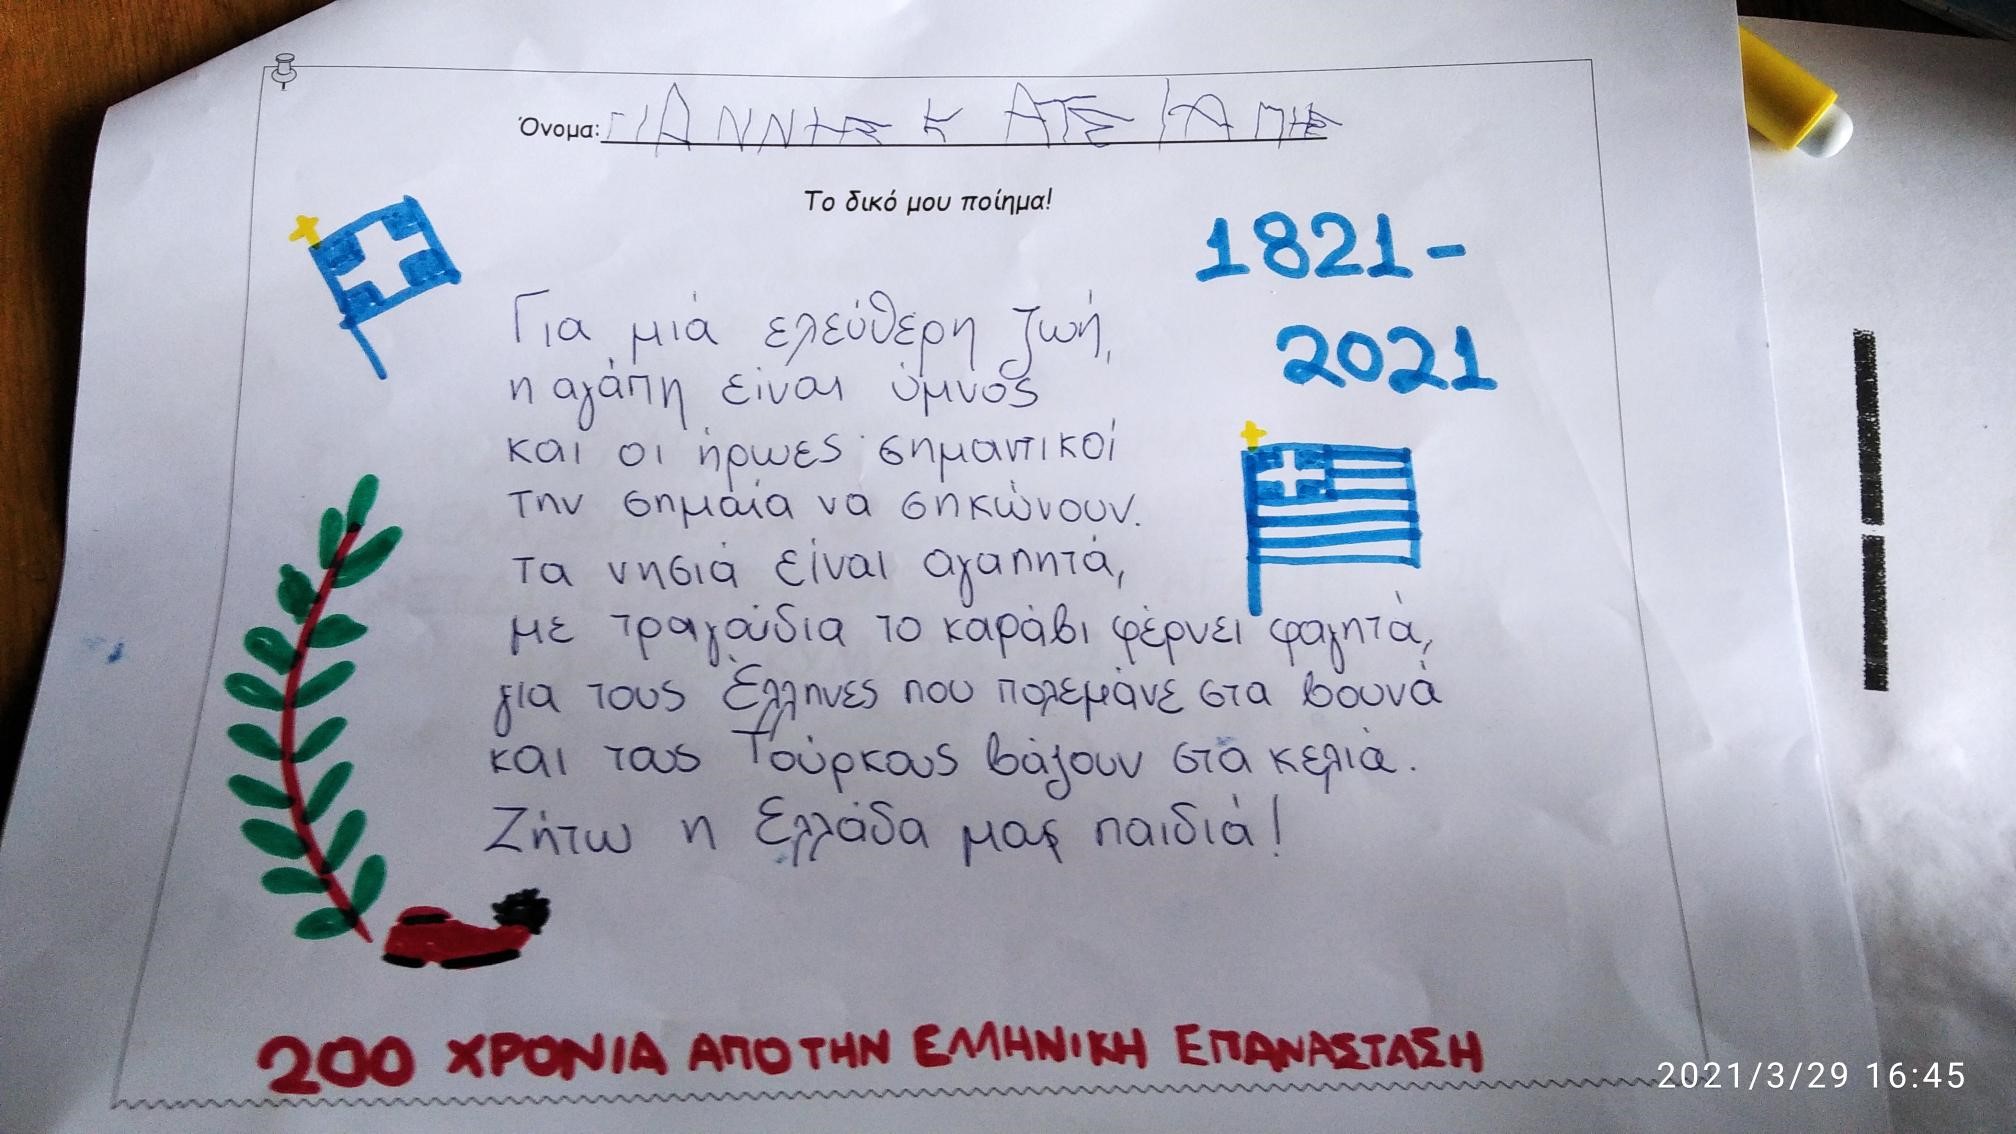 Όνομα: ΓΙΑΝΝΗΣ ΚΑΤΣΙΑΠΗΣ
Το δικό μου ποίημα!
1821-
2021
Για μιά ελεύθερη ζωή,
η αγάπη είναι ύμνος
και οι ήρωες σημαντικοί
την σημαία να σηκώνουν.
Τα νησιά είναι αγαπητά,
με τραγούδια το καράβι φέρνει φαγητά,
για τους Έλληνες που πολεμάνε στα βουνά
και τους Τούρκους βάζουν στα κελιά.
Ζήτω η Ελλάδα μας παιδιά!
200 ΧΡΟΝΙΑ ΑΠΟ ΤΗΝ ΕΛΛΗΝΙΚΗ ΕΠΑΝΑΣΤΑΣΗ
2021/3/29 16:45